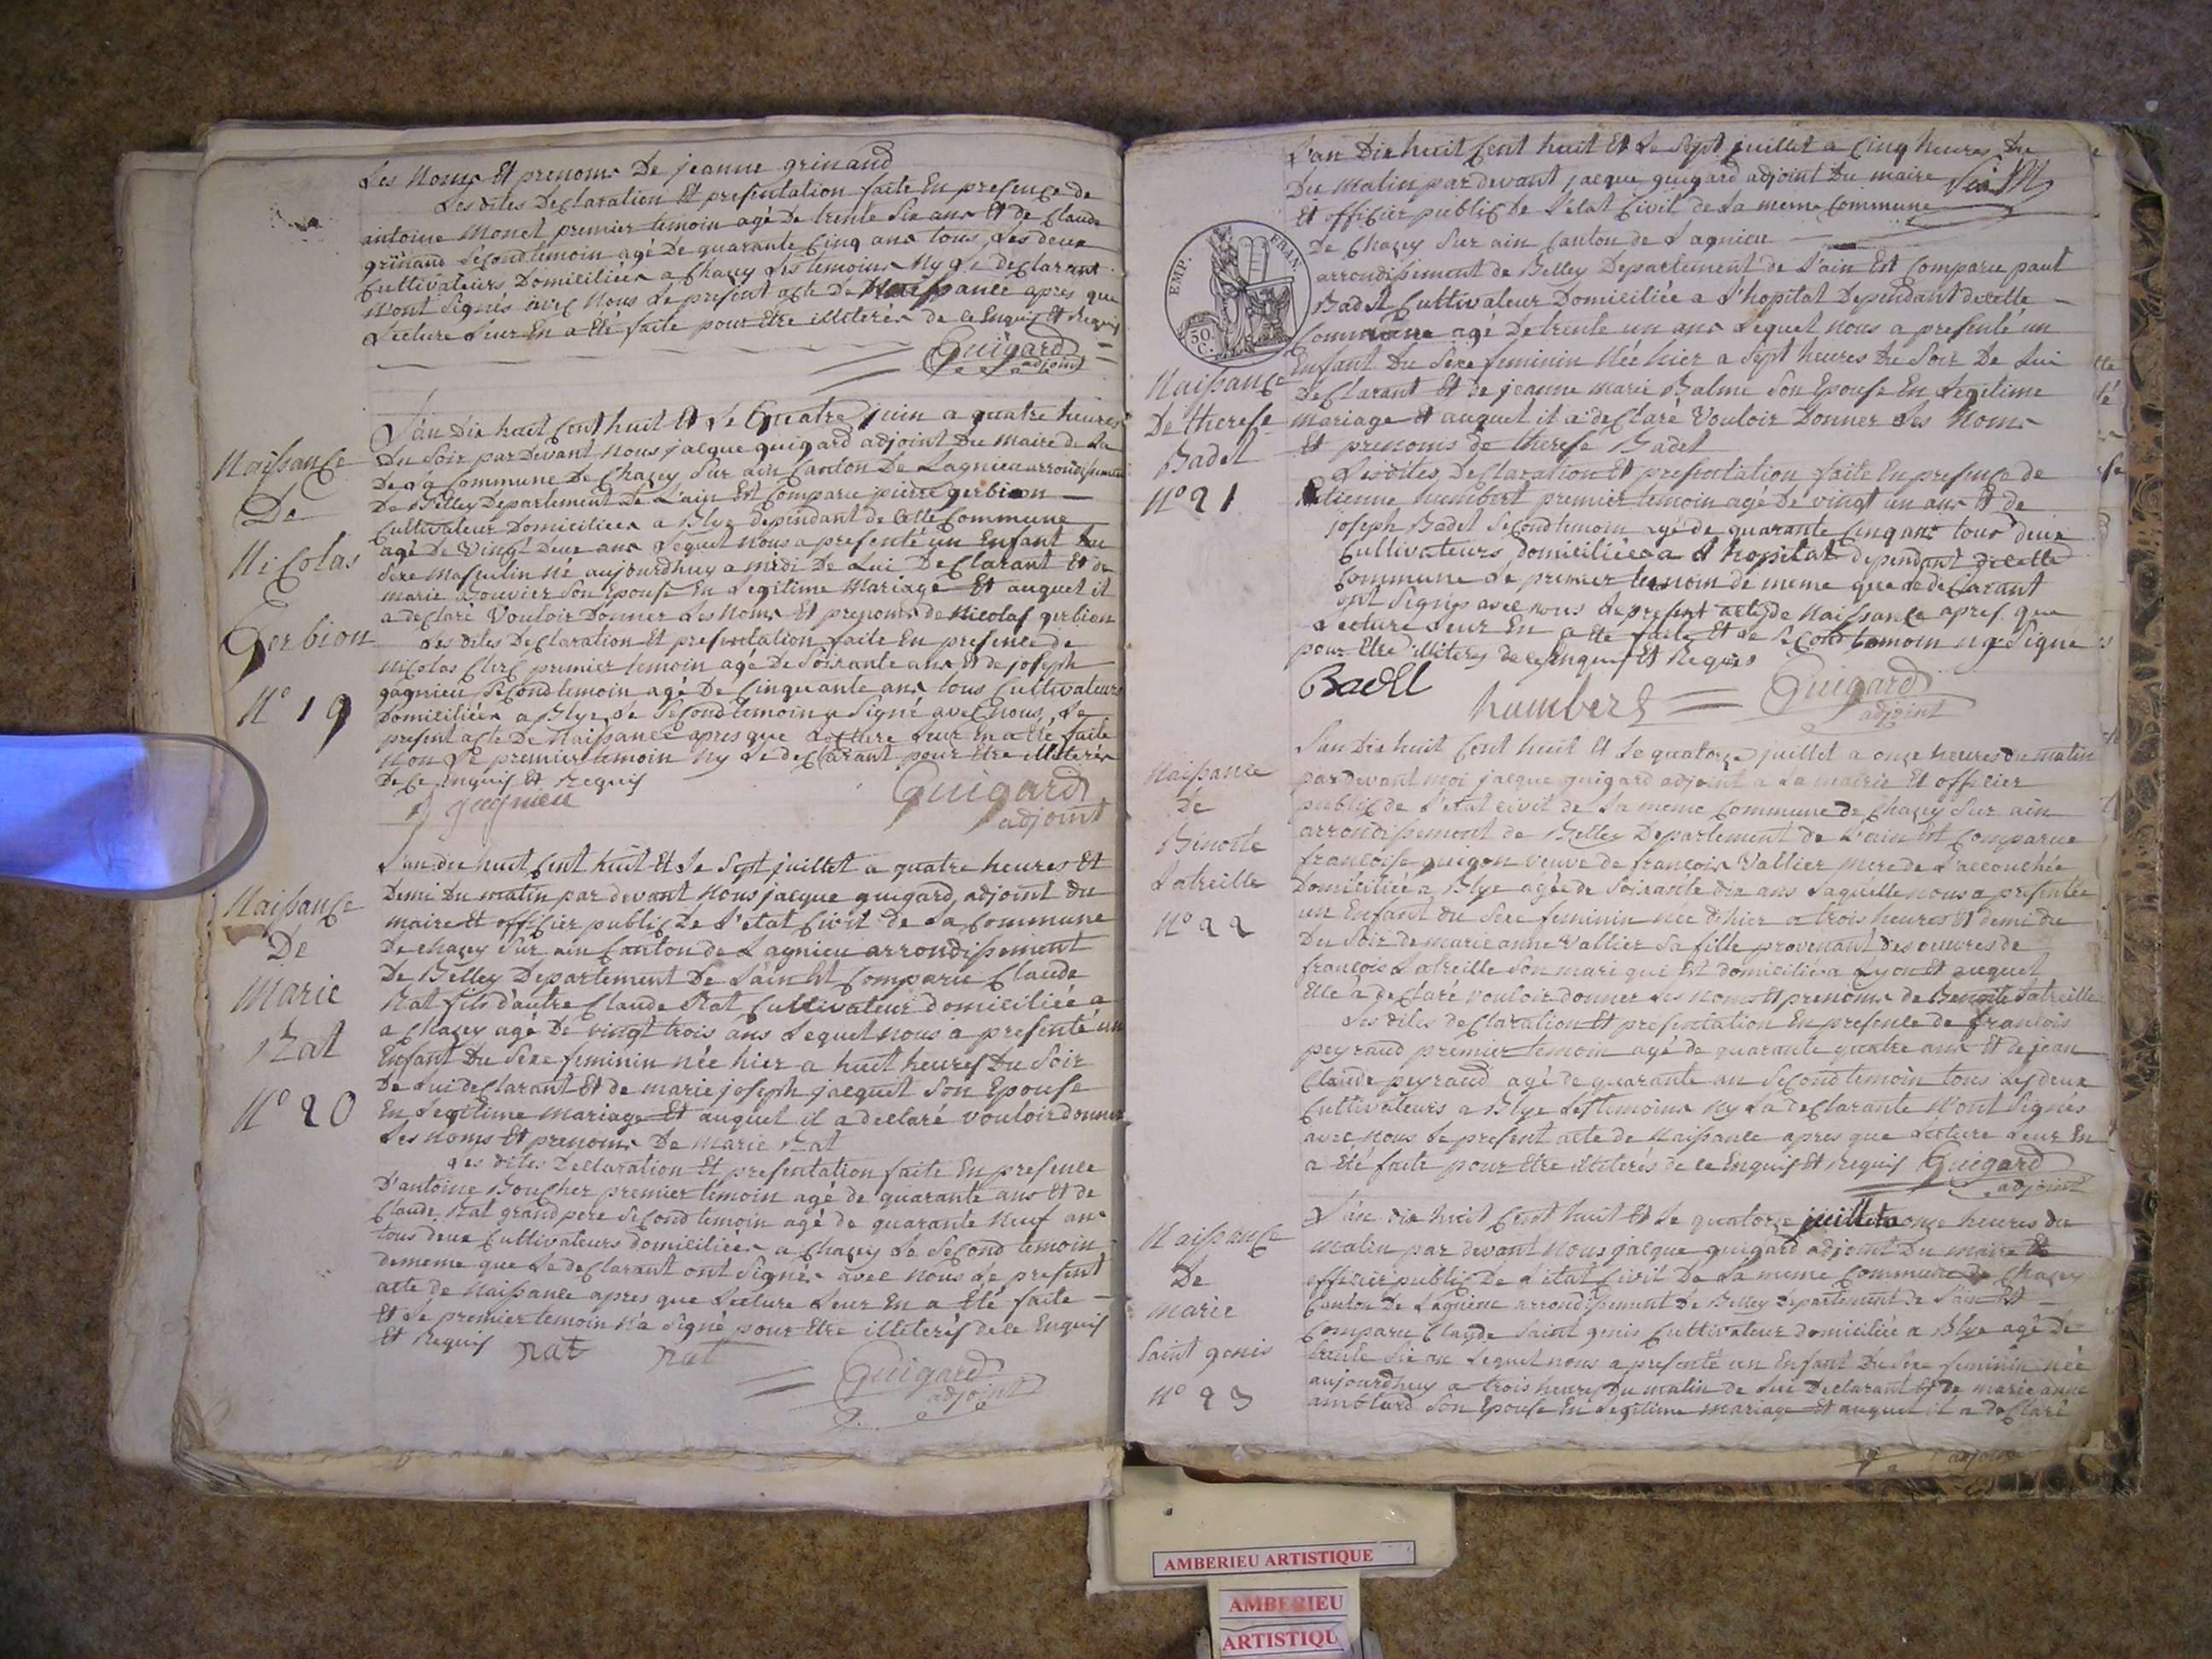 Les Noms Et prenoms De jeanne grinand
Les dites Declaration Et presentation faite En presence de
antoine Monet premier temoin agé De trente Six ans Et de Claude
grinand Second temoin agé De quarante Cinq ans tous Les deux
Cultivateurs Domiciliées a Chazey Les temoins Ny Le declarant
N'ont Signés avec Nous Le present acte De Naissance apres que
Lecture Leur En a Eté faite pour Etre illiterés de ce Enquis Et Requis
Guigard
adjoint
Naissance
De
Nicolas
Gerbion
N° 19
L'an Dix huit Cent huit Et Le Quatre juin a quatre heures
Du Soir par Devant Nous jacque guigard adjoint Du Maire de La
De a Commune De Chazey Sur ain Canton De Lagnieu arrondissement
De Belley Departement De L'ain Est Comparu pierre gerbion
Cultivateur Domiciliées a Blye dependant de Cette Commune
agé De Vingt Deux ans Lequel Nous a presenté un Enfant Du
Sexe Masculin Né aujourdhuy a midi De Lui Declarant Et de
marie Bouvier Son Epouse En Legitime Mariage Et auquel il
a declaré Vouloir Donner Les Noms Et prenoms de Nicolas gerbion
Les dites Declaration Et presentation faite En presence de
Nicolas Clerc premier temoin agé De Soixante ans Et de joseph
gagnieu Second temoin agé De Cinquante ans tous Cultivateurs
Domiciliées a Blye Le Second temoin a Signé avec Nous Le
present acte De Naissance apres que Lecture Leur En a Eté faite
Non Le premier temoin Ny Le declarant pour Etre illiterés
De Ce Enquis Et Requis
J gagnieu
Guigard
adjoint
Naissance
De
Marie
Rat
N° 20
L'an dix huit Cent huit Et Le Sept juillet a quatre heures Et
Demi Du matin par devant Nous jacque guigard, adjoint du
maire Et officier public De L'etat Civil de La Commune
De chazey Sur ain Canton de Lagnieu arrondissement
De Belley Departement De L'ain Est Comparu Claude
Rat fils d'autre Claude Rat Cultivateur domiciliée a
a Chazey agé De vingt trois ans Lequel nous a presenté un
Enfant Du Sexe feminin née hier a huit heures Du Soir
De Lui declarant Et de marie joseph jacquet Son Epouse
En Legitime mariage Et auquel il a declaré vouloir donner
Les Noms Et prenoms De Marie Rat
Les dites Declaration Et presentation faite En presence
D'antoine Boucher premier temoin agé de quarante ans Et de
Claude Rat grand pere Second temoin agé de quarante Neuf ans
tous deux Cultivateurs domiciliées a Chazey Le Second temoin
de meme que Le declarant ont Signés avec nous Le present
acte de Naissance apres que Lecture Leur En a Eté faite
Et Le premier temoin N'a Signé pour Etre illiterés de ce Enquis
Et Requis
rat rat
Guigard
adjoint
L'an Dix huit Cent huit Et Le Sept juillet a Cinq heures Du
Du Matin par devant jacque guigard adjoint Du maire
Et officier public De L'etat Civil de La meme Commune
De Chazey Sur ain Canton de Lagnieu
arrondissement de Belley Departement de L'ain Est Comparu paul
Badel Cultivateur Domiciliée a L'hopital Dependant de Cette
Commune agé De trente un ans Lequel nous a presenté un
Enfant Du Sexe feminin Née hier a Sept heures Du Soir De Lui
Declarant Et de jeanne marie Balme Son Epouse En Legitime
mariage Et auquel il a declaré Vouloir Donner Les Noms
Et prenoms de therese Badel
EMP. FRAN.
50
C.
Naissance
De therese
Badel
N° 21
Les dites Declaration Et presentation faite En presence de
Etienne humbert premier temoin agé De vingt un ans Et de
joseph Badel Second temoin agé de quarante Cinq ans tous deux
Cultivateurs domiciliées a L'hopital dependant de cette
Commune Le premier temoin de meme que Le declarant
ont Signés avec nous Le present acte de Naissance apres que
Lecture Leur En a Eté faite Et Le Second temoin ny Signe
pour Etre illiterés de ce Enquis Et Requis
Badel
humbert
Guigard
adjoint
Naissance
de
Benoite
Latreille
N° 22
L'an Dix huit Cent huit Et Le quatorze juillet a onze heures du matin
par devant moi jacque guigard adjoint a La mairie Et officier
public de L'etat civil de La meme Commune de Chazey Sur ain
arrondissement de Belley Departement de L'ain Est Comparue
francoise guigon veuve de francois Vallier mere de L'accouchée
Domiciliée a Blye agée de Soixante dix ans Laquelle nous a presentée
un Enfant du Sexe feminin née d'hier a trois heures Et demi du
Du Soir de marie anne Vallier Sa fille provenant Des oeuvres de
francois Latreille Son mari qui Est domiciliée a Lyon Et auquel
Elle a declaré vouloir donner Les Noms Et prenoms de Benoite Latreille
Les dites declaration Et presentation En presence de francois
peyraud premier temoin agé de quarante quatre ans Et de jean
Claude peyraud agé de quarante un Second temoin tous Les deux
Cultivateurs a Blye Les temoins Ny La declarante N'ont Signés
avec nous Le present acte de Naissance apres que Lecture Leur En
a Eté faite pour Etre illiterés de ce Enquis Et Requis Guigard
adjoint
Naissance
De
Marie
Saint genis
N° 23
L'an dix huit Cent huit Et Le quatorze juillet a onze heures du
matin par devant Nous jacque guigard adjoint Du maire Et
officier public De L'etat Civil De La meme Commune de Chazey
Canton De Lagnieu arrondissement De Belley departement de L'ain Est
Comparu Claude Saint genis Cultivateur domiciliée a Blye agé De
trente Six an Lequel nous a presenté un Enfant Du Sexe feminin née
aujourdhuy a trois heures Du matin de Lui Declarant Et de marie anne
amblard Son Epouse En Legitime mariage Et auquel il a declaré
adjoint
AMBERIEU ARTISTIQUE
AMBERIEU
ARTISTIQU